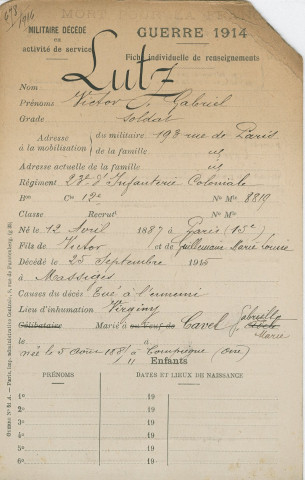 678
1914
MILITAIRE DÉCÉDÉ
en
activité de service
GUERRE 1914
Fiche individuelle de renseignements
Lutz
Nom
Prénoms Victor J. Gabriel
Grade Soldat
Adresse à la mobilisation du militaire 198 rue de Paris
de la famille id
Adresse actuelle de la famille id
Régiment 23e d'Infanterie Coloniale
Bon Cie 12e No Mle 8819
Classe Recrut No Mle
Né le 12 Avril 1887 à Paris (15e)
Fils de Victor et de Guillemain Marie Louise
Décédé le 25 Septembre 1915
à Massiges
Causes du décès Tué à l'ennemi
Lieu d'inhumation Virginy
Célibataire Marié à ou Veuf de Cavel Gabrielle
Marie
le à
née le 5 1881 à Compiègne (Oise)
Enfants
PRÉNOMS DATES ET LIEUX DE NAISSANCE
1o 19
2o 19
3o 19
4o 19
5o 19
6o 19